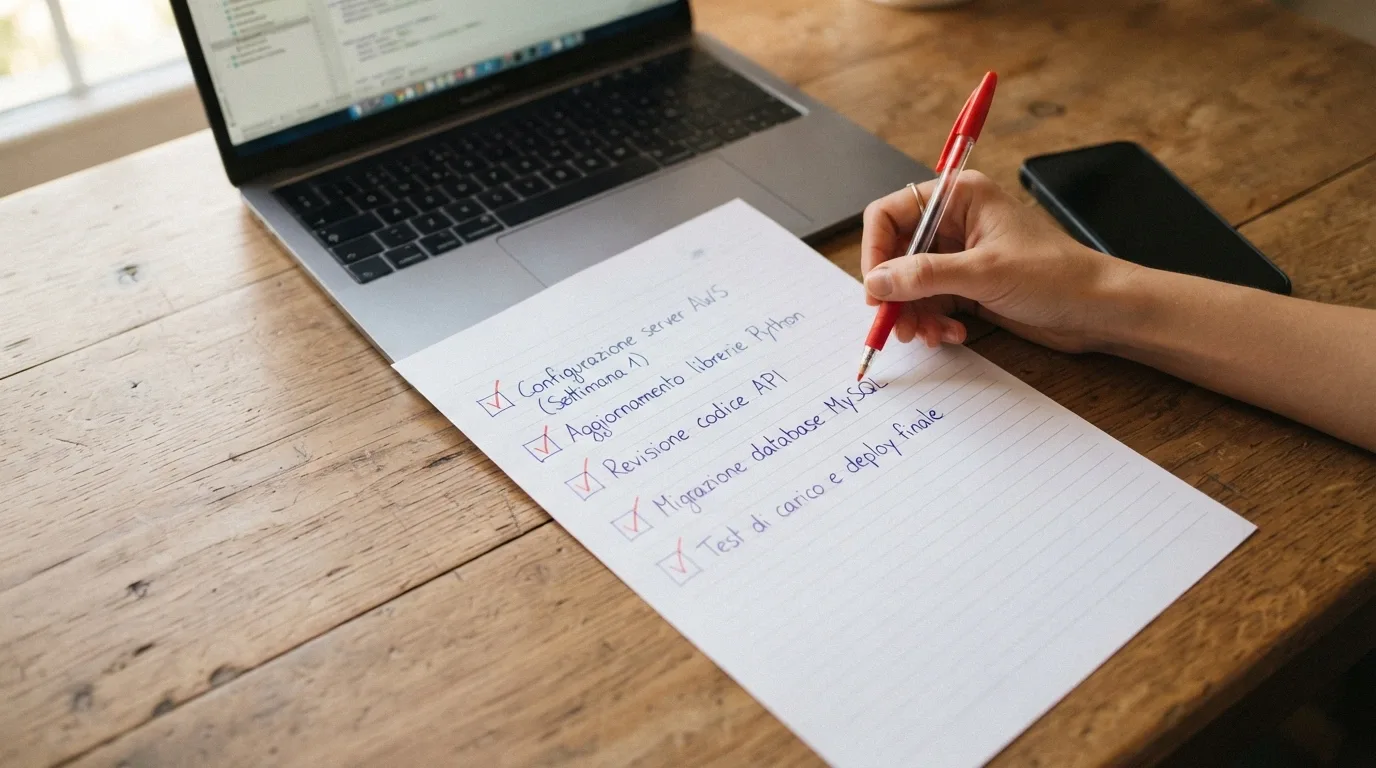 Configurazione server AWS
(Settimana 1)
Aggiornamento librerie Python
Revisione codice API
Migrazione database MySQL
Test di carico e deploy finale